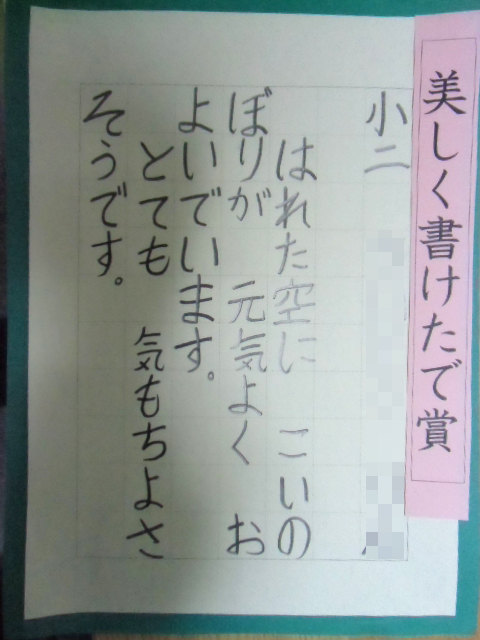 美しく書けたで賞
小二
はれた空に こいの
ぼりが 元気よく お
よいでいます。
とても 気もちよさ
そうです。